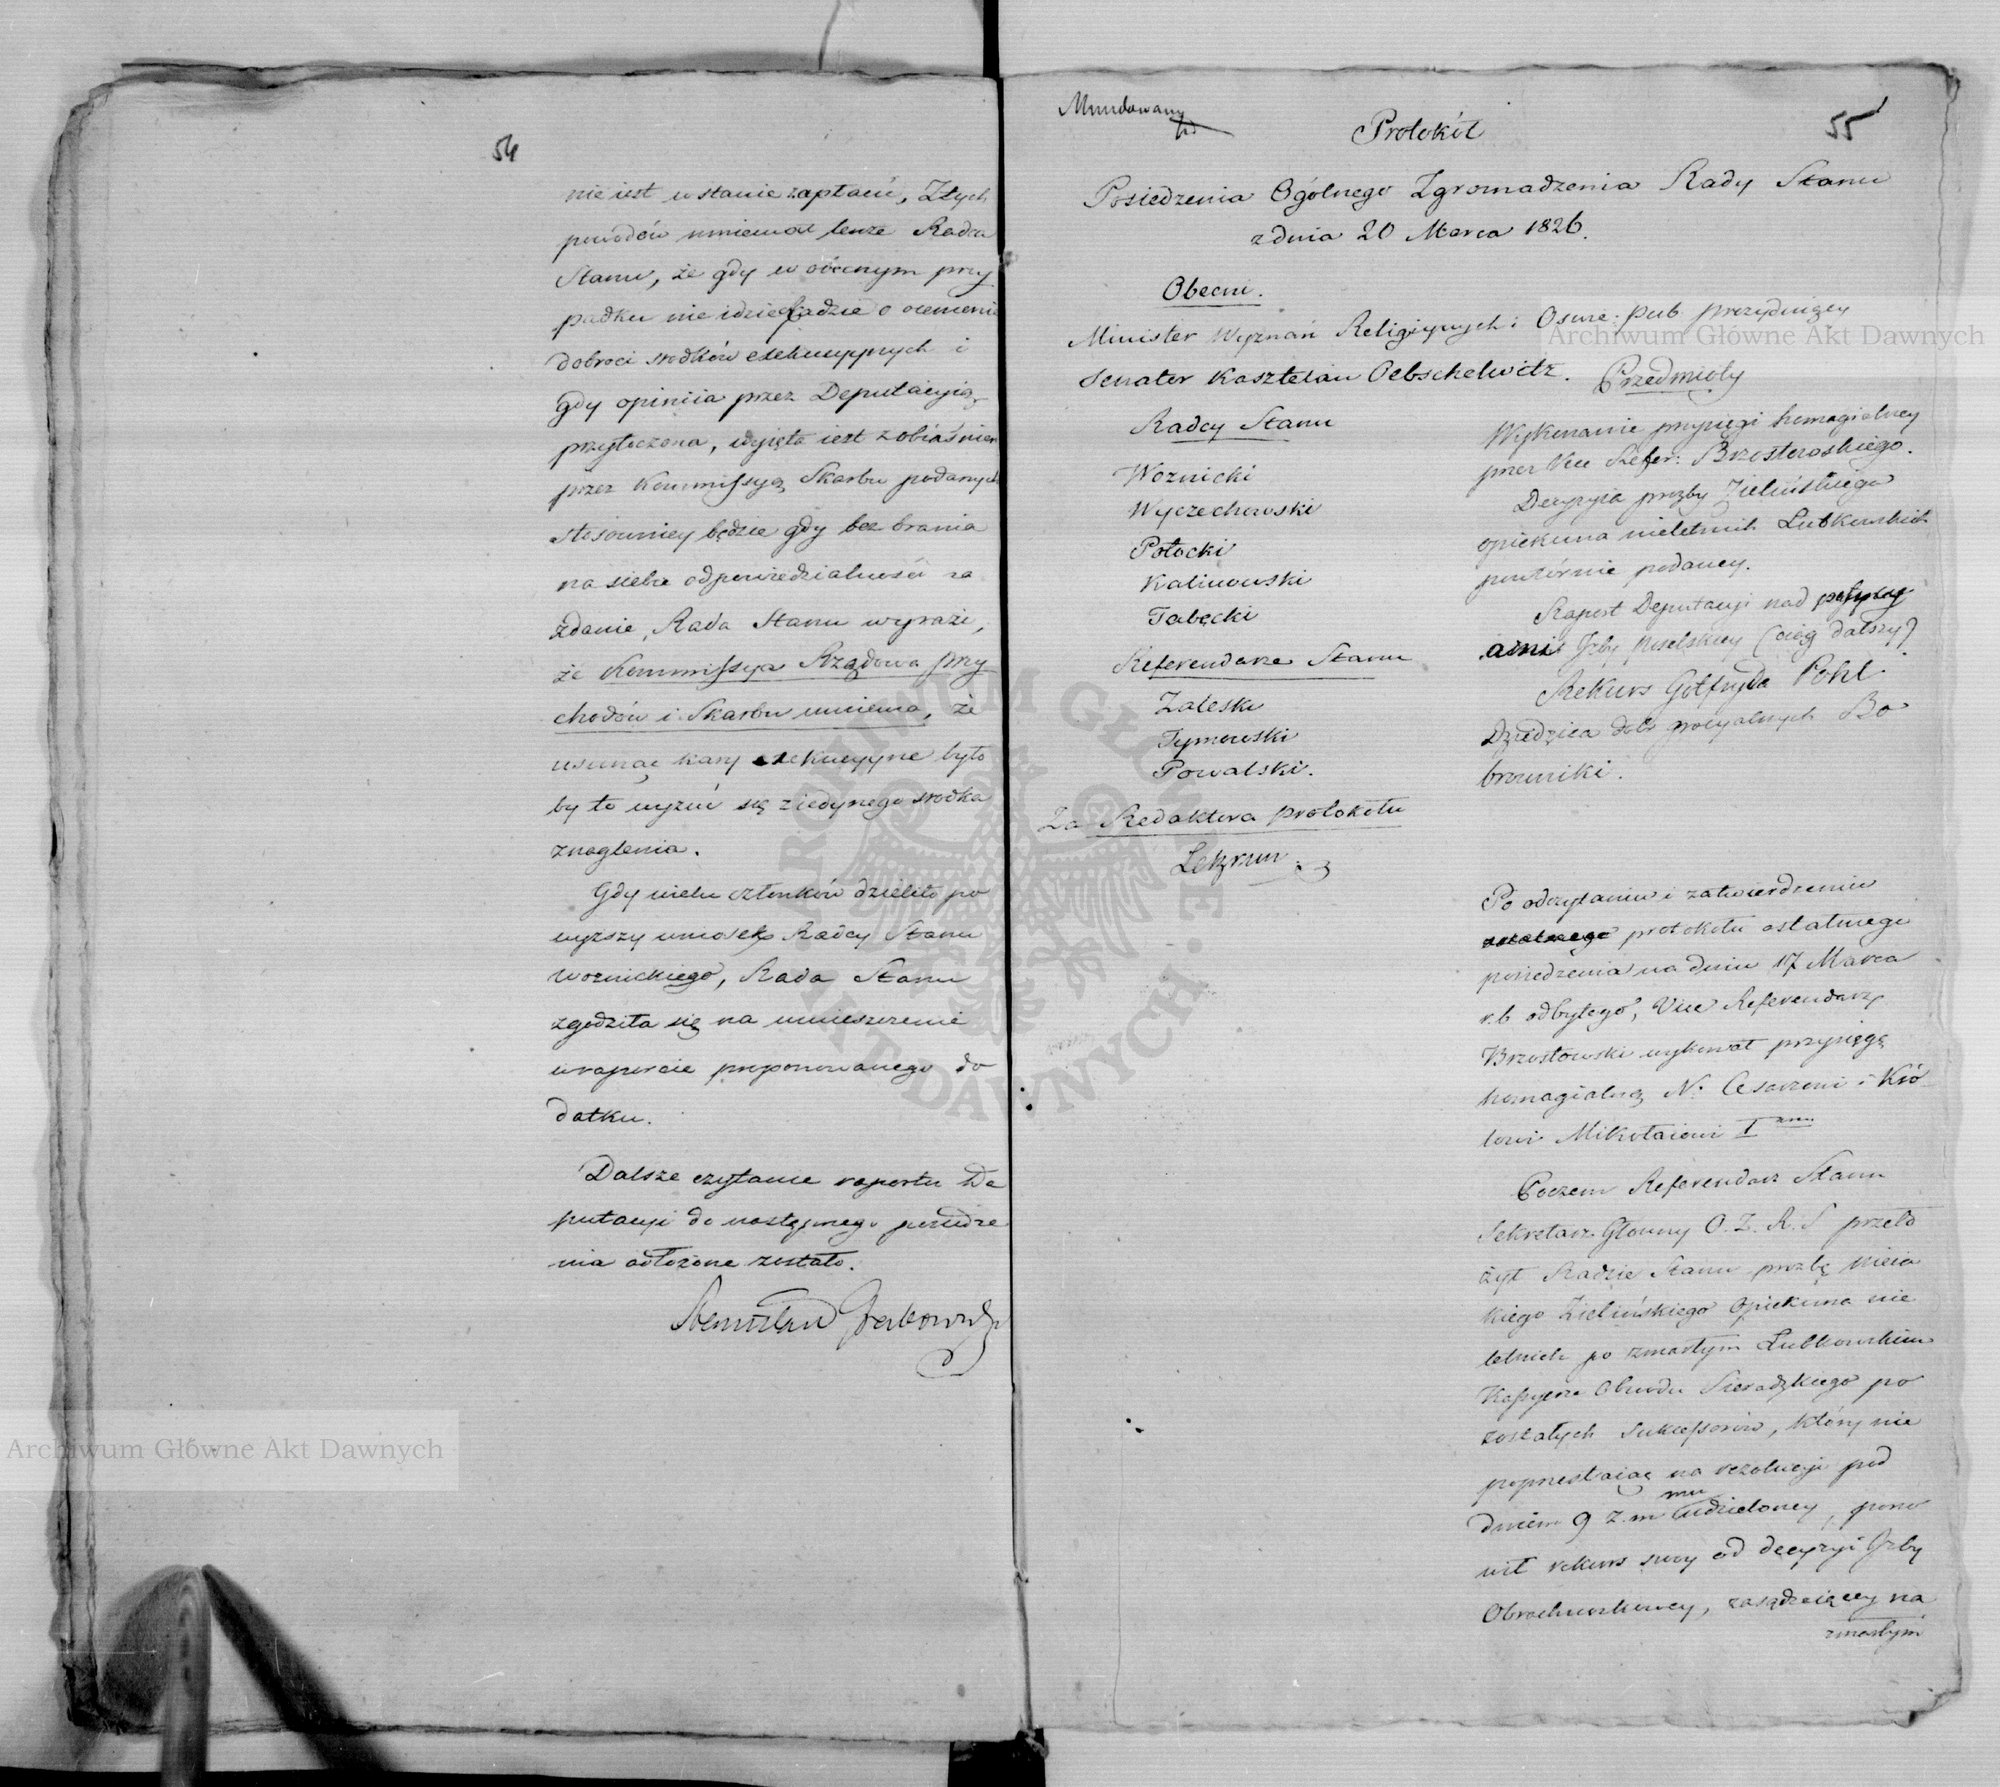 54
nie iest w stanie zapłacić, Z tych
powodów mniemał tenże Radca
Stanu, że gdy w obecnym przy
padku nie idzie Rządzie o ocenienie
dobroci srodków exekucyynych i
gdy opiniia przez Deputacyią
przytoczona, wyięta iest z obiaśnien
przez Kommissyą Skarbu podanych
stosowniey będzie gdy bez brania
na siebie odpowiedzialności za
zdanie, Rada Stanu wyrazi,
że Kommissya Rządowa Przy
chodów i Skarbu mniema, że
usunąć kary exekucyyne było
by to wyzuć się z iedynego srodka
znaglenia.
Gdy wielu członków dzieliło po
wyższy wniosek Radcy Stanu
Woznickiego, Rada Stanu
zgodziła się na umieszczenie
w raporcie proponowanego do
datku.
Dalsze czytanie raportu De
putacyi do następnego posiedze
nia odłożone zostało.
Stanisław Grabowski
Mundowany
55
Protokół
Posiedzenia Ogólnego Zgromadzenia Rady Stanu
z dnia 20 Marca 1826.
Obecni.
Minister Wyznań Religiynych i Oswie: pub prezyduiący
Senator Kasztelan Oebschelwitz.
Radcy Stanu
Woznicki
Wyczechowski
Potocki
Kalinowski
Tabęcki
Referendarze Stanu
Zaleski
Tymowski
Powalski.
Za Redaktora protokołu
Lekrun
Przedmioty
Wykonanie przysięgi homagialney
przez Vice Refer: Brzostowskiego.
Decyzyia prozby Zielińskiego
opiekuna nieletnich Lutkowskich
powtórnie podaney.
Raport Deputacyi nad
Izby poselskiey (ciąg dalszy)
Rekurs Gotfryda Pohl
Dziedzica dobr Bo
browniki.
Po odczytaniu i zatwierdzeniu
protokołu ostatniego
posiedzenia na dniu 17 Marca
r.b odbytego, Vice Referendarz
Brzostowski wykonał przysięgę
homagialną N. Cesarzowi i Kró
lowi Mikołaiowi I
Poczem Referendarz Stanu
Sekretarz Główny O. Z. R. S przeło
żył Radzie Stanu prozbę nieia
kiego Zielińskiego Opiekuna nie
letnich po zmarłym Lutkowskim
Kassyerze Obwodu Sieradzkiego po
zostałych Sukcessorów, który nie
poprzestaiąc na rezolucyi pod
dniem 9 z.m mu udzieloney, pono
wił rekurs swoy od decyzyi Izby
Obrachunkowey, zasądzaiącey na
zmarłym
Archiwum Główne Akt Dawnych
Archiwum Główne Akt Dawnych
ARCHIWUM GŁÓWNE AKT DAWNYCH